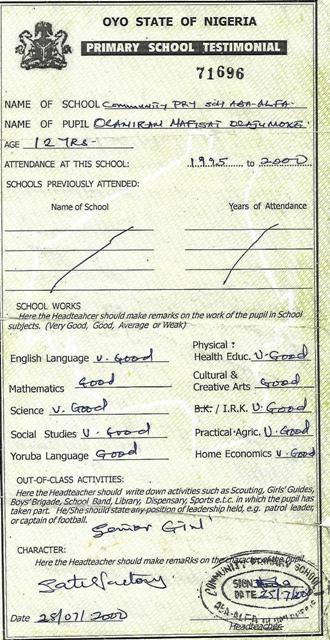 OYO STATE OF NIGERIA
PRIMARY SCHOOL TESTIMONIAL
71696
NAME OF SCHOOL Community PRY SCH ABA-ALFA.
NAME OF PUPIL OLANIRAN HAFISAT OLAJUMOKE
AGE 12 YRS-
ATTENDANCE AT THIS SCHOOL: 1995 to 2000
SCHOOLS PREVIOUSLY ATTENDED:
Name of School Years of Attendance
SCHOOL WORKS
Here the Headteahcer should make remarks on the work of the pupil in School
subjects. (Very Good, Good, Average or Weak)
English Language V. Good
Physical :
Health Educ. V. Good
Mathematics Good
Cultural &
Creative Arts Good
Science V. Good
B.K. / I.R.K. V. Good
Social Studies V. Good
Practical Agric. V. Good
Yoruba Language Good
Home Economics V. Good
OUT-OF-CLASS ACTIVITIES:
Here the Headteacher should write down activities such as Scouting, Girls' Guides,
Boys' Brigade, School Band, Library, Dispensary, Sports e.t.c. in which the pupil has
taken part. He/She should state any position of leadership held, e.g. patrol leader,
or captain of football.
Senior Girl
CHARACTER:
Here the Headteacher should make remaRks on the character of the pupil
Satisfactory
COMMUNITY PRIMARY SCHOOL
SIGN
DATE 28/7/200
ABA-ALFA
Date 28/07/2000
Headteacher